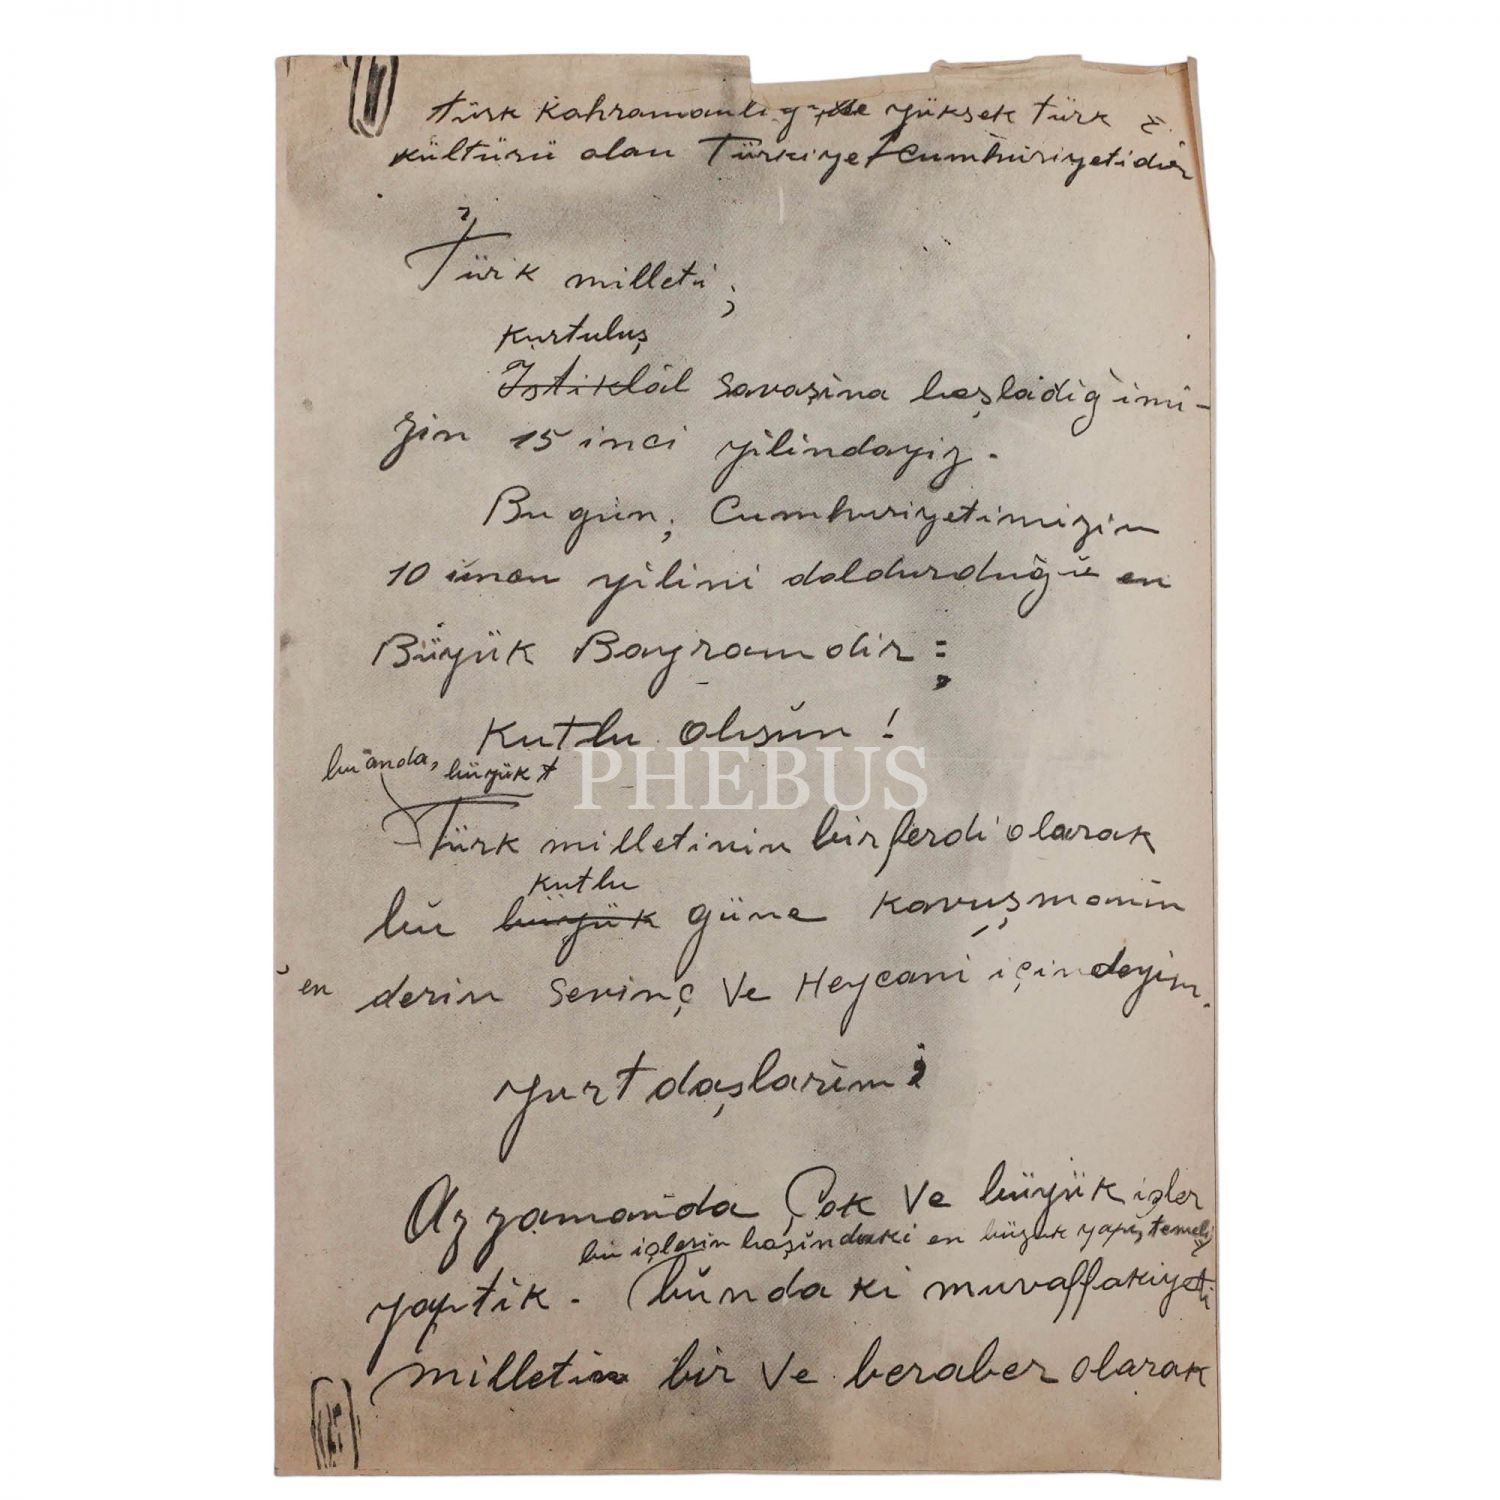 türk kahramanlığ ve yüksek türk
kültürü olan Türkiye Cumhuriyetidir
Türk milleti;
Kurtuluş
İstiklâl savaşına başladığımı-
zin 15 inci yilindayiz.
Bu gün, Cumhuriyetimizin
10 uncu yilini doldurduğu en
Büyük Bayramdir;
Kutlu olsun!
PHEBUS
bu anda, büyük t
Türk milletinin bir ferdi olarak
kutlu
bu büyük güne kavuşmanin
en derin sevinç ve Heycani içindeyim.
yurtdaşlarim
Az zamanda Çok ve büyük işler
bu işlerin başindaki en büyük yapiş, temeli
yaptik. bundaki muvaffakiyeti
milletin bir ve beraber olarak